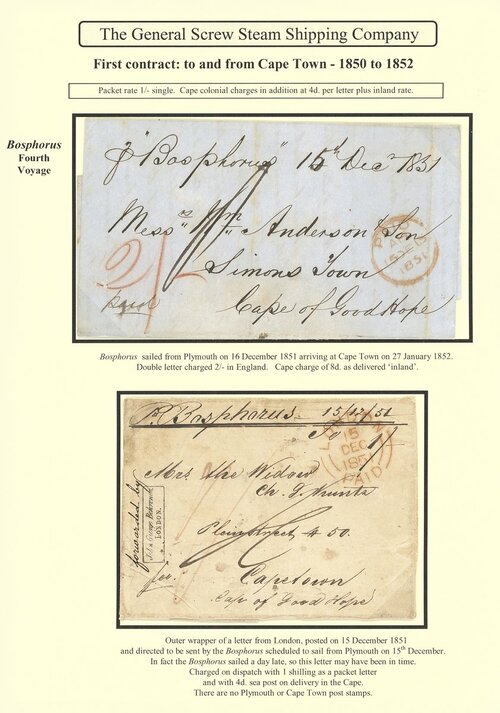 The General Screw Steam Shipping Company
First contract: to and from Cape Town - 1850 to 1852
Packet rate 1/- single. Cape colonial charges in addition at 4d. per letter plus inland rate.
Bosphorus
Fourth
Voyage
"Bosphorus" 15th Decr 1851
Messrs Wm Anderson Son
Simons Town
Cape of Good Hope
2/-
paid
1851
Bosphorus sailed from Plymouth on 16 December 1851 arriving at Cape Town on 27 January 1852.
Double letter charged 2/- in England. Cape charge of 8d. as delivered 'inland'.
Pr Bosphorus. 15/12/51
To
1/-
LONDON
15
DEC
1851
PAID
Mrs. the Widow
Ch. J.
Plein street № 50.
Capetown
Cape of Good Hope
forwarded by
LONDON.
per.
Outer wrapper of a letter from London, posted on 15 December 1851
and directed to be sent by the Bosphorus scheduled to sail from Plymouth on 15th December.
In fact the Bosphorus sailed a day late, so this letter may have been in time.
Charged on dispatch with 1 shilling as a packet letter
and with 4d. sea post on delivery in the Cape.
There are no Plymouth or Cape Town post stamps.